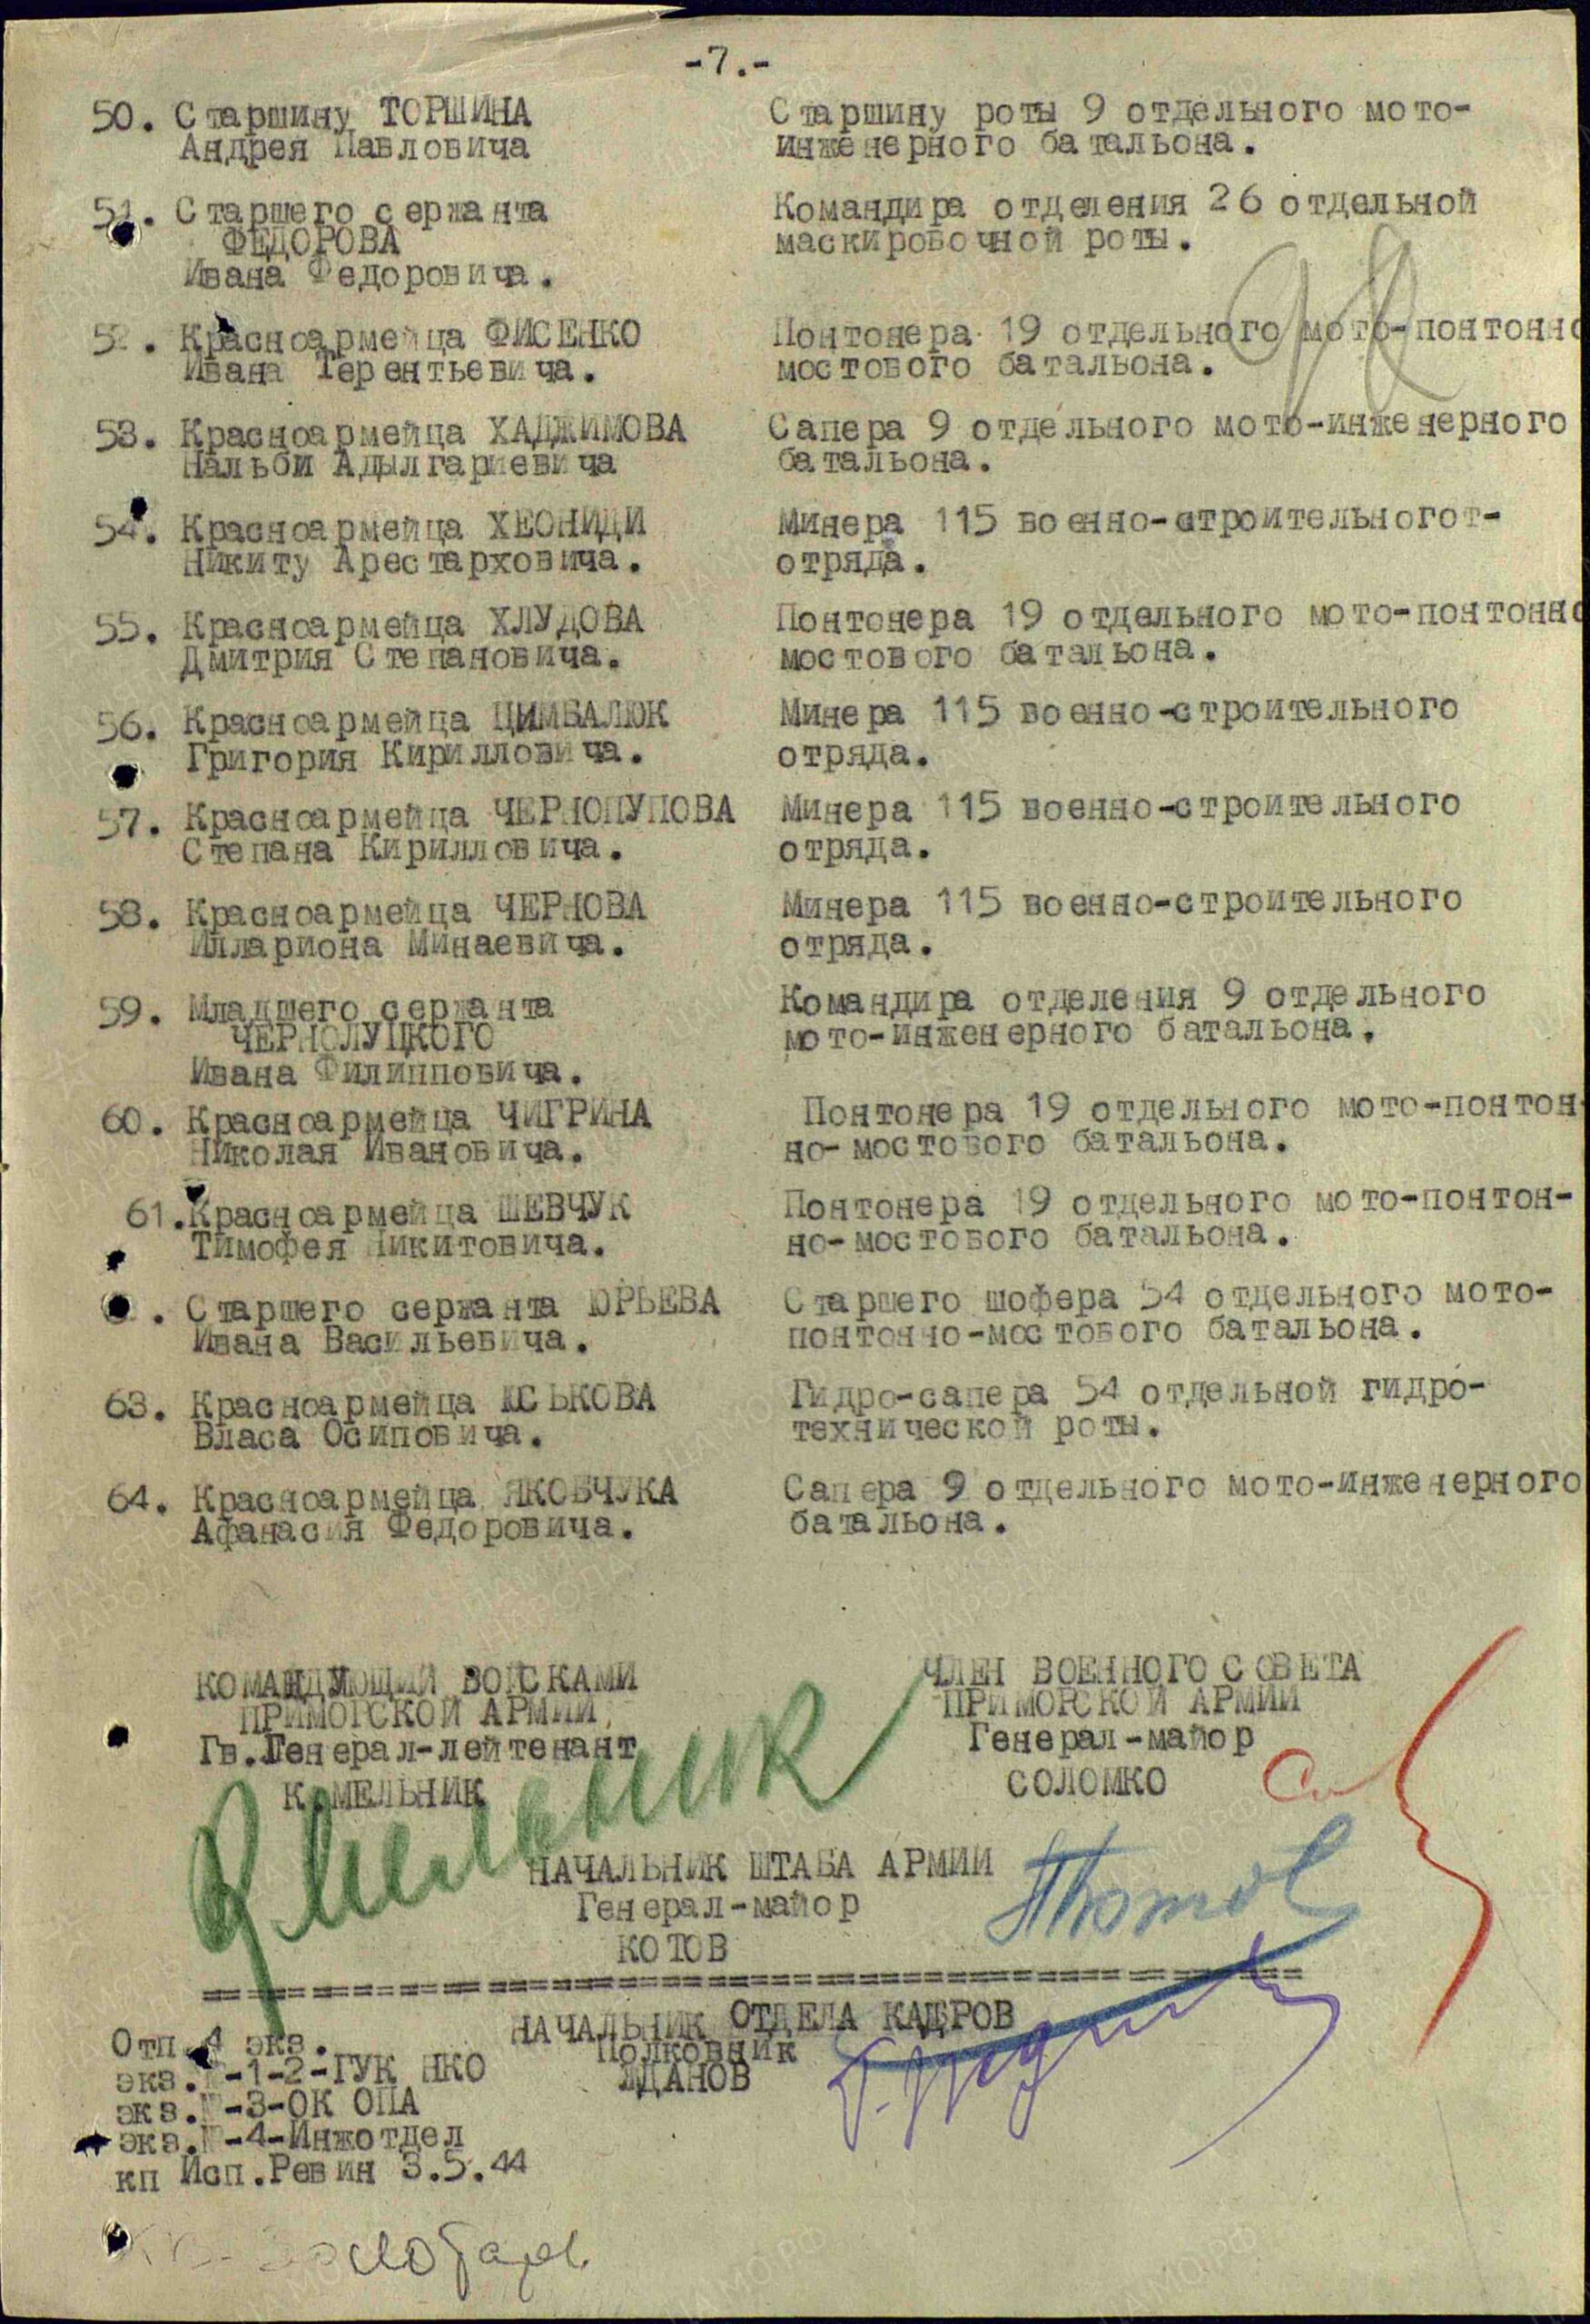 -7.-
50. Старшину ТОРШИНА Старшину роты 9 отдельного мото-
Андрея Павловича инженерного батальона.
51. Старшего сержанта Командира отделения 26 отдельной
ФЕДОРОВА маскировочной роты.
Ивана Федоровича.
52. Красноармейца ФИСЕНКО Понтонера 19 отдельного мото-понтонно
Ивана Терентьевича. мостового батальона.
53. Красноармейца ХАДЖИМОВА Сапера 9 отдельного мото-инженерного
Нальби Адылгариевича батальона.
54. Красноармейца ХЕОНИДИ Минера 115 военно-строительногот-
Никиту Арестарховича. отряда.
55. Красноармейца ХЛУДОВА Понтонера 19 отдельного мото-понтонно
Дмитрия Степановича. мостового батальона.
56. Красноармейца ЦИМБАЛЮК Минера 115 военно-строительного
Григория Кирилловича. отряда.
57. Красноармейца ЧЕРНОПУПОВА Минера 115 военно-строительного
Степана Кирилловича. отряда.
58. Красноармейца ЧЕРНОВА Минера 115 военно-строительного
Иллариона Минаевича. отряда.
59. Младшего сержанта Командира отделения 9 отдельного
ЧЕРНОЛУЦКОГО мото-инженерного батальона.
Ивана Филипповича.
60. Красноармейца ЧИГРИНА Понтонера 19 отдельного мото-понтон-
Николая Ивановича. но-мостового батальона.
61. Красноармейца ШЕВЧУК Понтонера 19 отдельного мото-понтон-
Тимофея Никитовича. но-мостового батальона.
. Старшего сержанта ЮРЬЕВА Старшего шофера 54 отдельного мото-
Ивана Васильевича. понтонно-мостового батальона.
63. Красноармейца ЮСЬКОВА Гидро-сапера 54 отдельной гидро-
Власа Осиповича. технической роты.
64. Красноармейца ЯКОБЧУКА Сапера 9 отдельного мото-инженерного
Афанасия Федоровича. батальона.
КОМАНДУЮЩИЙ ВОЙСКАМИ ЧЛЕН ВОЕННОГО СОВЕТА
ПРИМОРСКОЙ АРМИИ ПРИМОРСКОЙ АРМИИ
Гв.Генерал-лейтенант Генерал-майор
К.МЕЛЬНИК СОЛОМКО
НАЧАЛЬНИК ШТАБА АРМИИ
Генерал-майор
КОТОВ
НАЧАЛЬНИК ОТДЕЛА КАДРОВ
Полковник
ЖДАНОВ
Отп. 4 экз.
экз.№-1-2-ГУК НКО
экз.№-3-ОК ОПА
экз.№-4-Инжотдел
кп Исп.Ревин 3.5.44